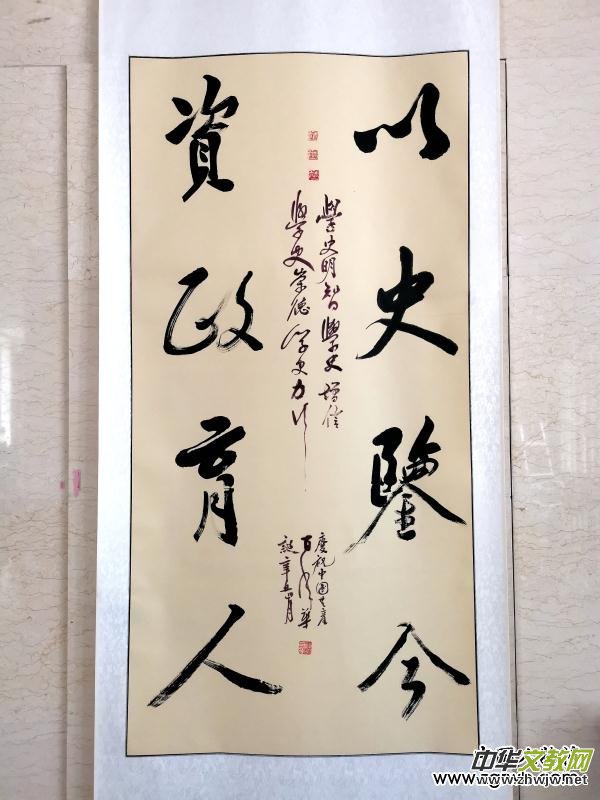 以史鑒今
資政育人
學史明智學史增信
學史崇德學史力行
慶祝中國共産
百年華
誕辛丑月
中华文教网
www.zhwjw.net